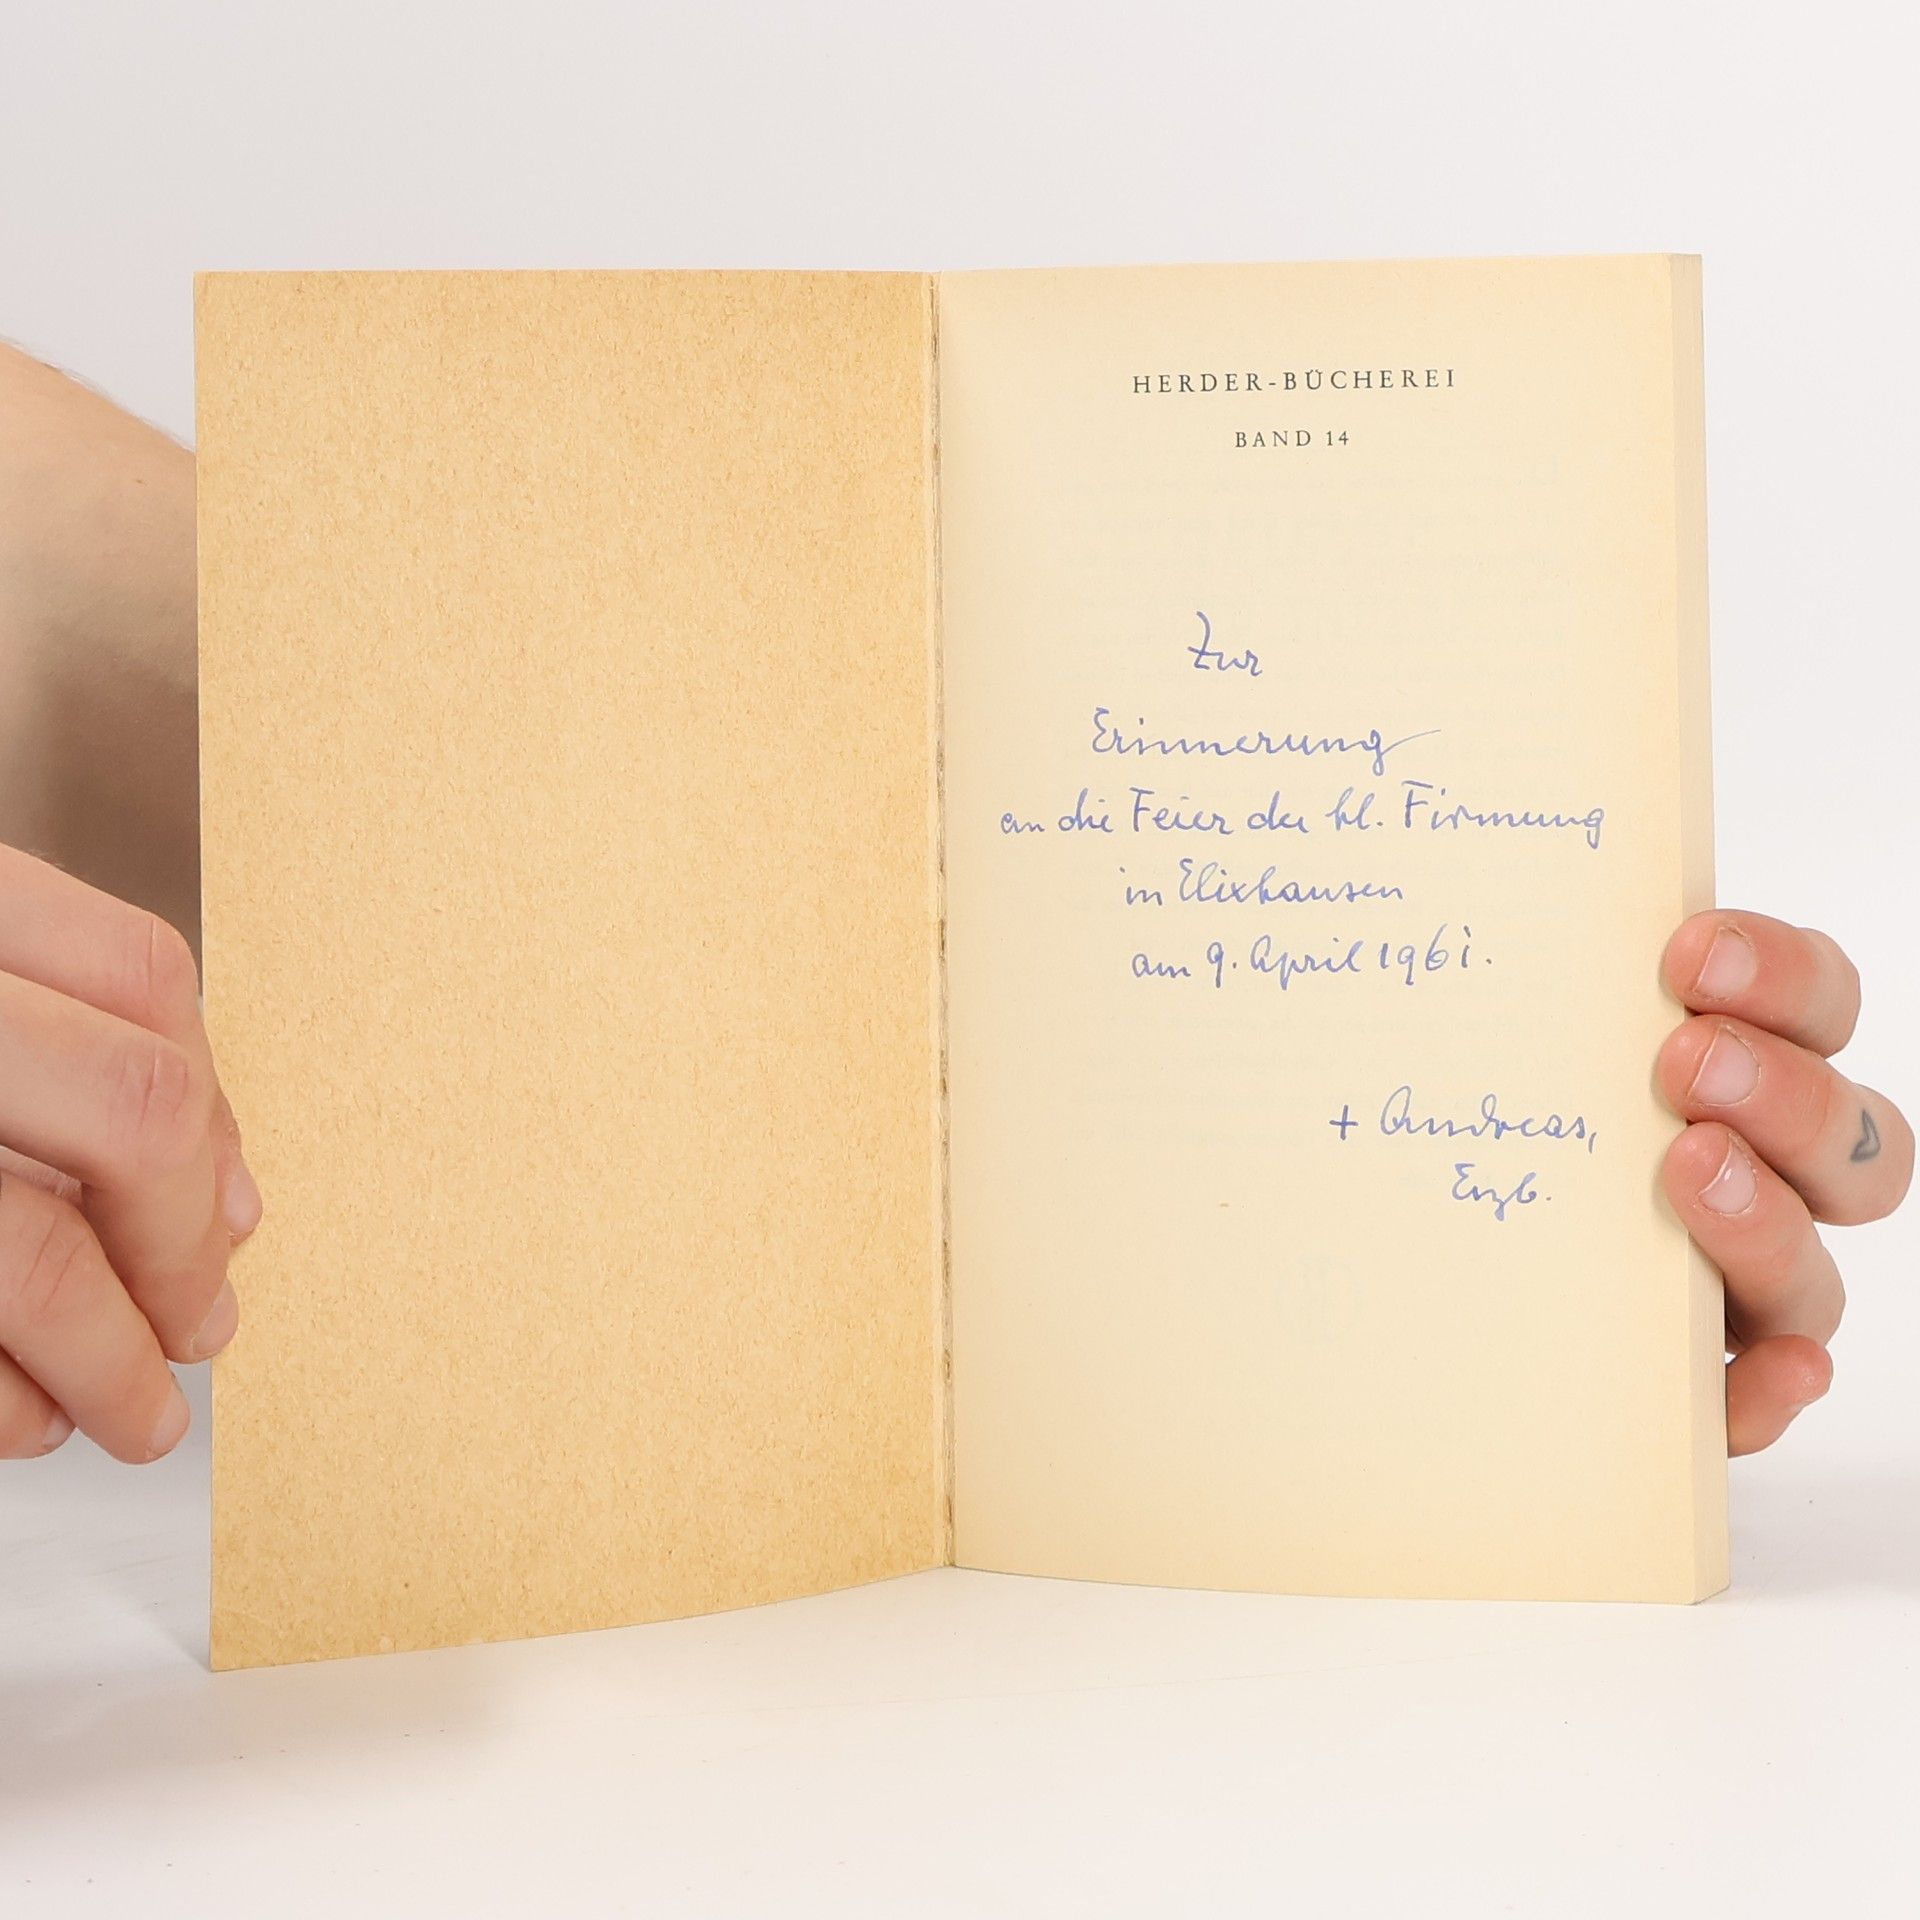 HERDER-BÜCHEREI
BAND 14
Zur
Erinnerung
an die Feier der hl. Firmung
in Elixhausen
am 9. April 1961.
+ Andreas,
Erzb.